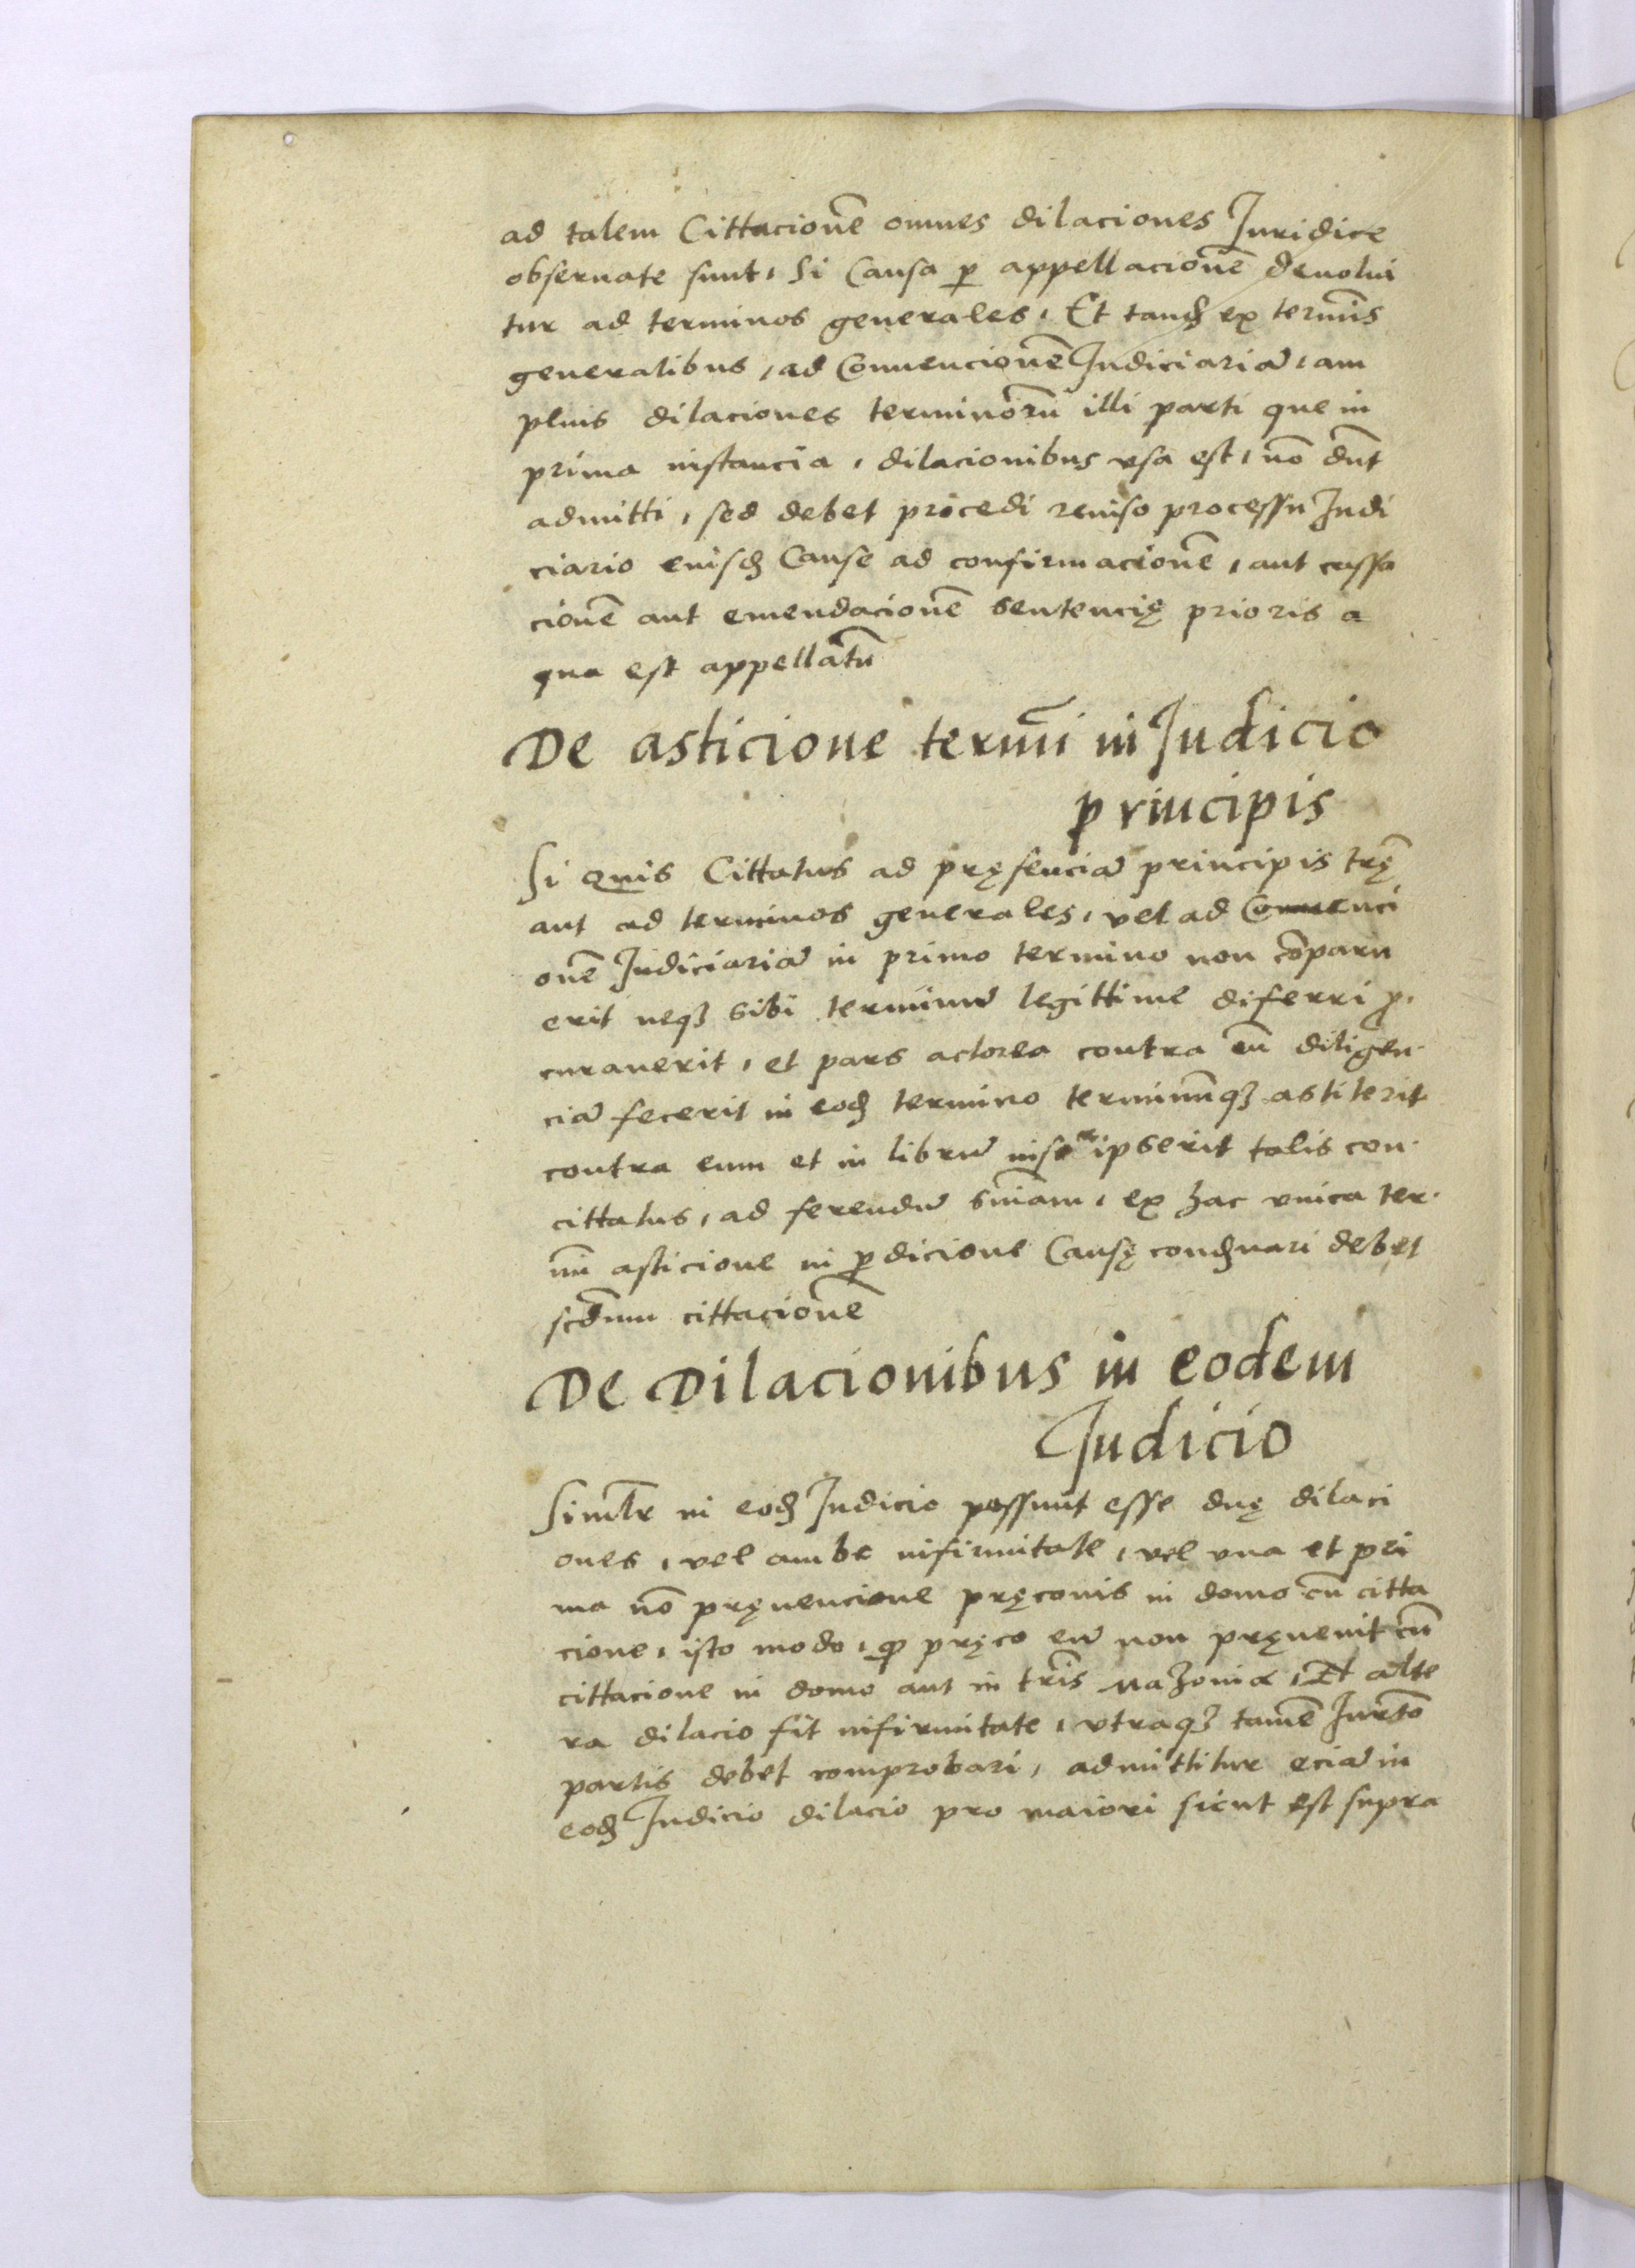 ad talem Cittacionē omnes dilaciones Juridice
obseruate sunt, Si Causa ꝑ appellacionē deuolui
tur ad terminos generales, Et tandē ex termīs
generalibus, ad Conuencionē Judiciariā, am
plius dilaciones terminorū illi parti que in
prima instancia, dilacionibus vsa est, nō dn̄t
admitti, sed debet procedi reuiso processu Judi
ciario eiusdē Cause ad confirmacionē, aut cassa
cionē aut emendacionē sentencię prioris a
qua est appellatū
De asticione termī in Judicio
principis
Si Quis Cittatus ad pręsenciā principis trę̄
aut ad terminos generales, vel ad Conuenci
onē Judiciariā in primo termino non cōparu
erit neqȝ sibi terminū legittime diferri ꝓ
curauerit, et pars actorea contra eū diligen
ciā fecerit in eodē termino terminūqȝ astiterit
contra eum et in librū inscripserit talis con
cittatus, ad ferendū sniam, ex hac vnica ter
mī asticione in ꝑdicione Causę condēnari debet
scdnm cittacionē
De Dilacionibus in eodem
Judicio
Simlr in eodē Judicio possunt esse duę dilaci
ones, vel ambe infirmitate, vel vna et pri
ma nō pręuencione pręconis in domo cū citta
cione, isto modo, ꝙ pręco eū non pręuenit cū
cittacione in domo aut in tris Mazouiæ, Et alte
ra dilacio fit infirmitate, vtraqȝ tamē Jurtō
partis debet comprobari, admittitur eciā in
eodē Judicio dilacio pro maiori sicut est supra